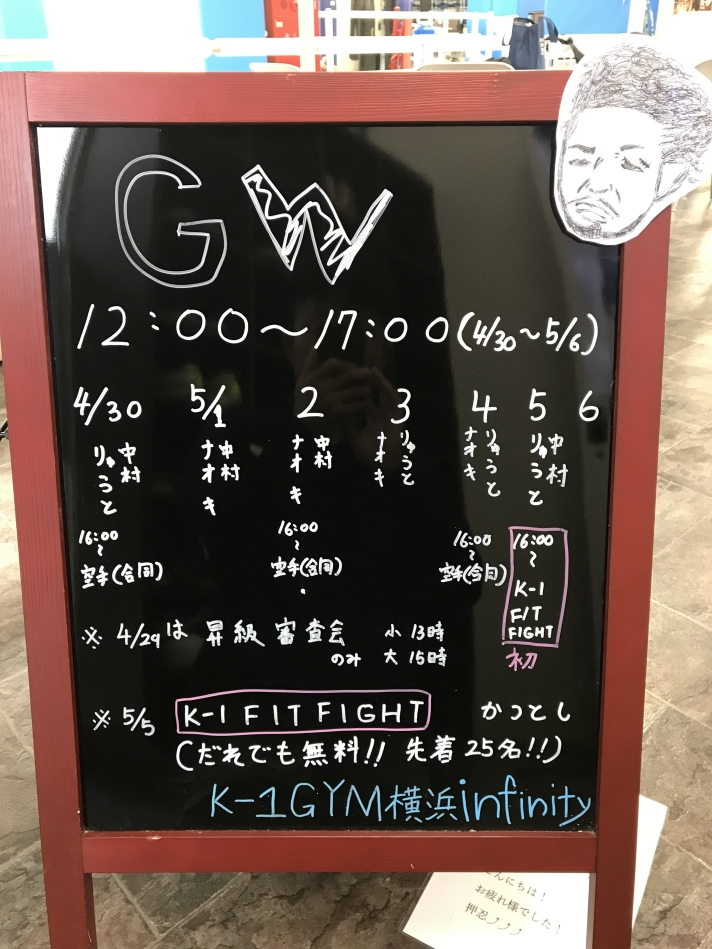 GW
12:00～17:00(4/30～5/6)
4/30 5/1 2 3 4 5 6
中村 りゅうと
中村 ナオキ
中村 ナオキ
りゅうと ナオキ
りゅうと ナオキ
中村 りゅうと
16:00
～
空手(合同)
16:00
～
空手(合同)
16:00
～
空手(合同)
16:00
～
K-1
FIT
FIGHT
初
※ 4/29は 昇級審査会 小 13時
のみ 大 15時
※ 5/5 K-1 FIT FIGHT かつとし
(だれでも無料!! 先着25名!!)
K-1GYM横浜infinity
こんにちは!
お疲れ様でした!
押忍ノノノ